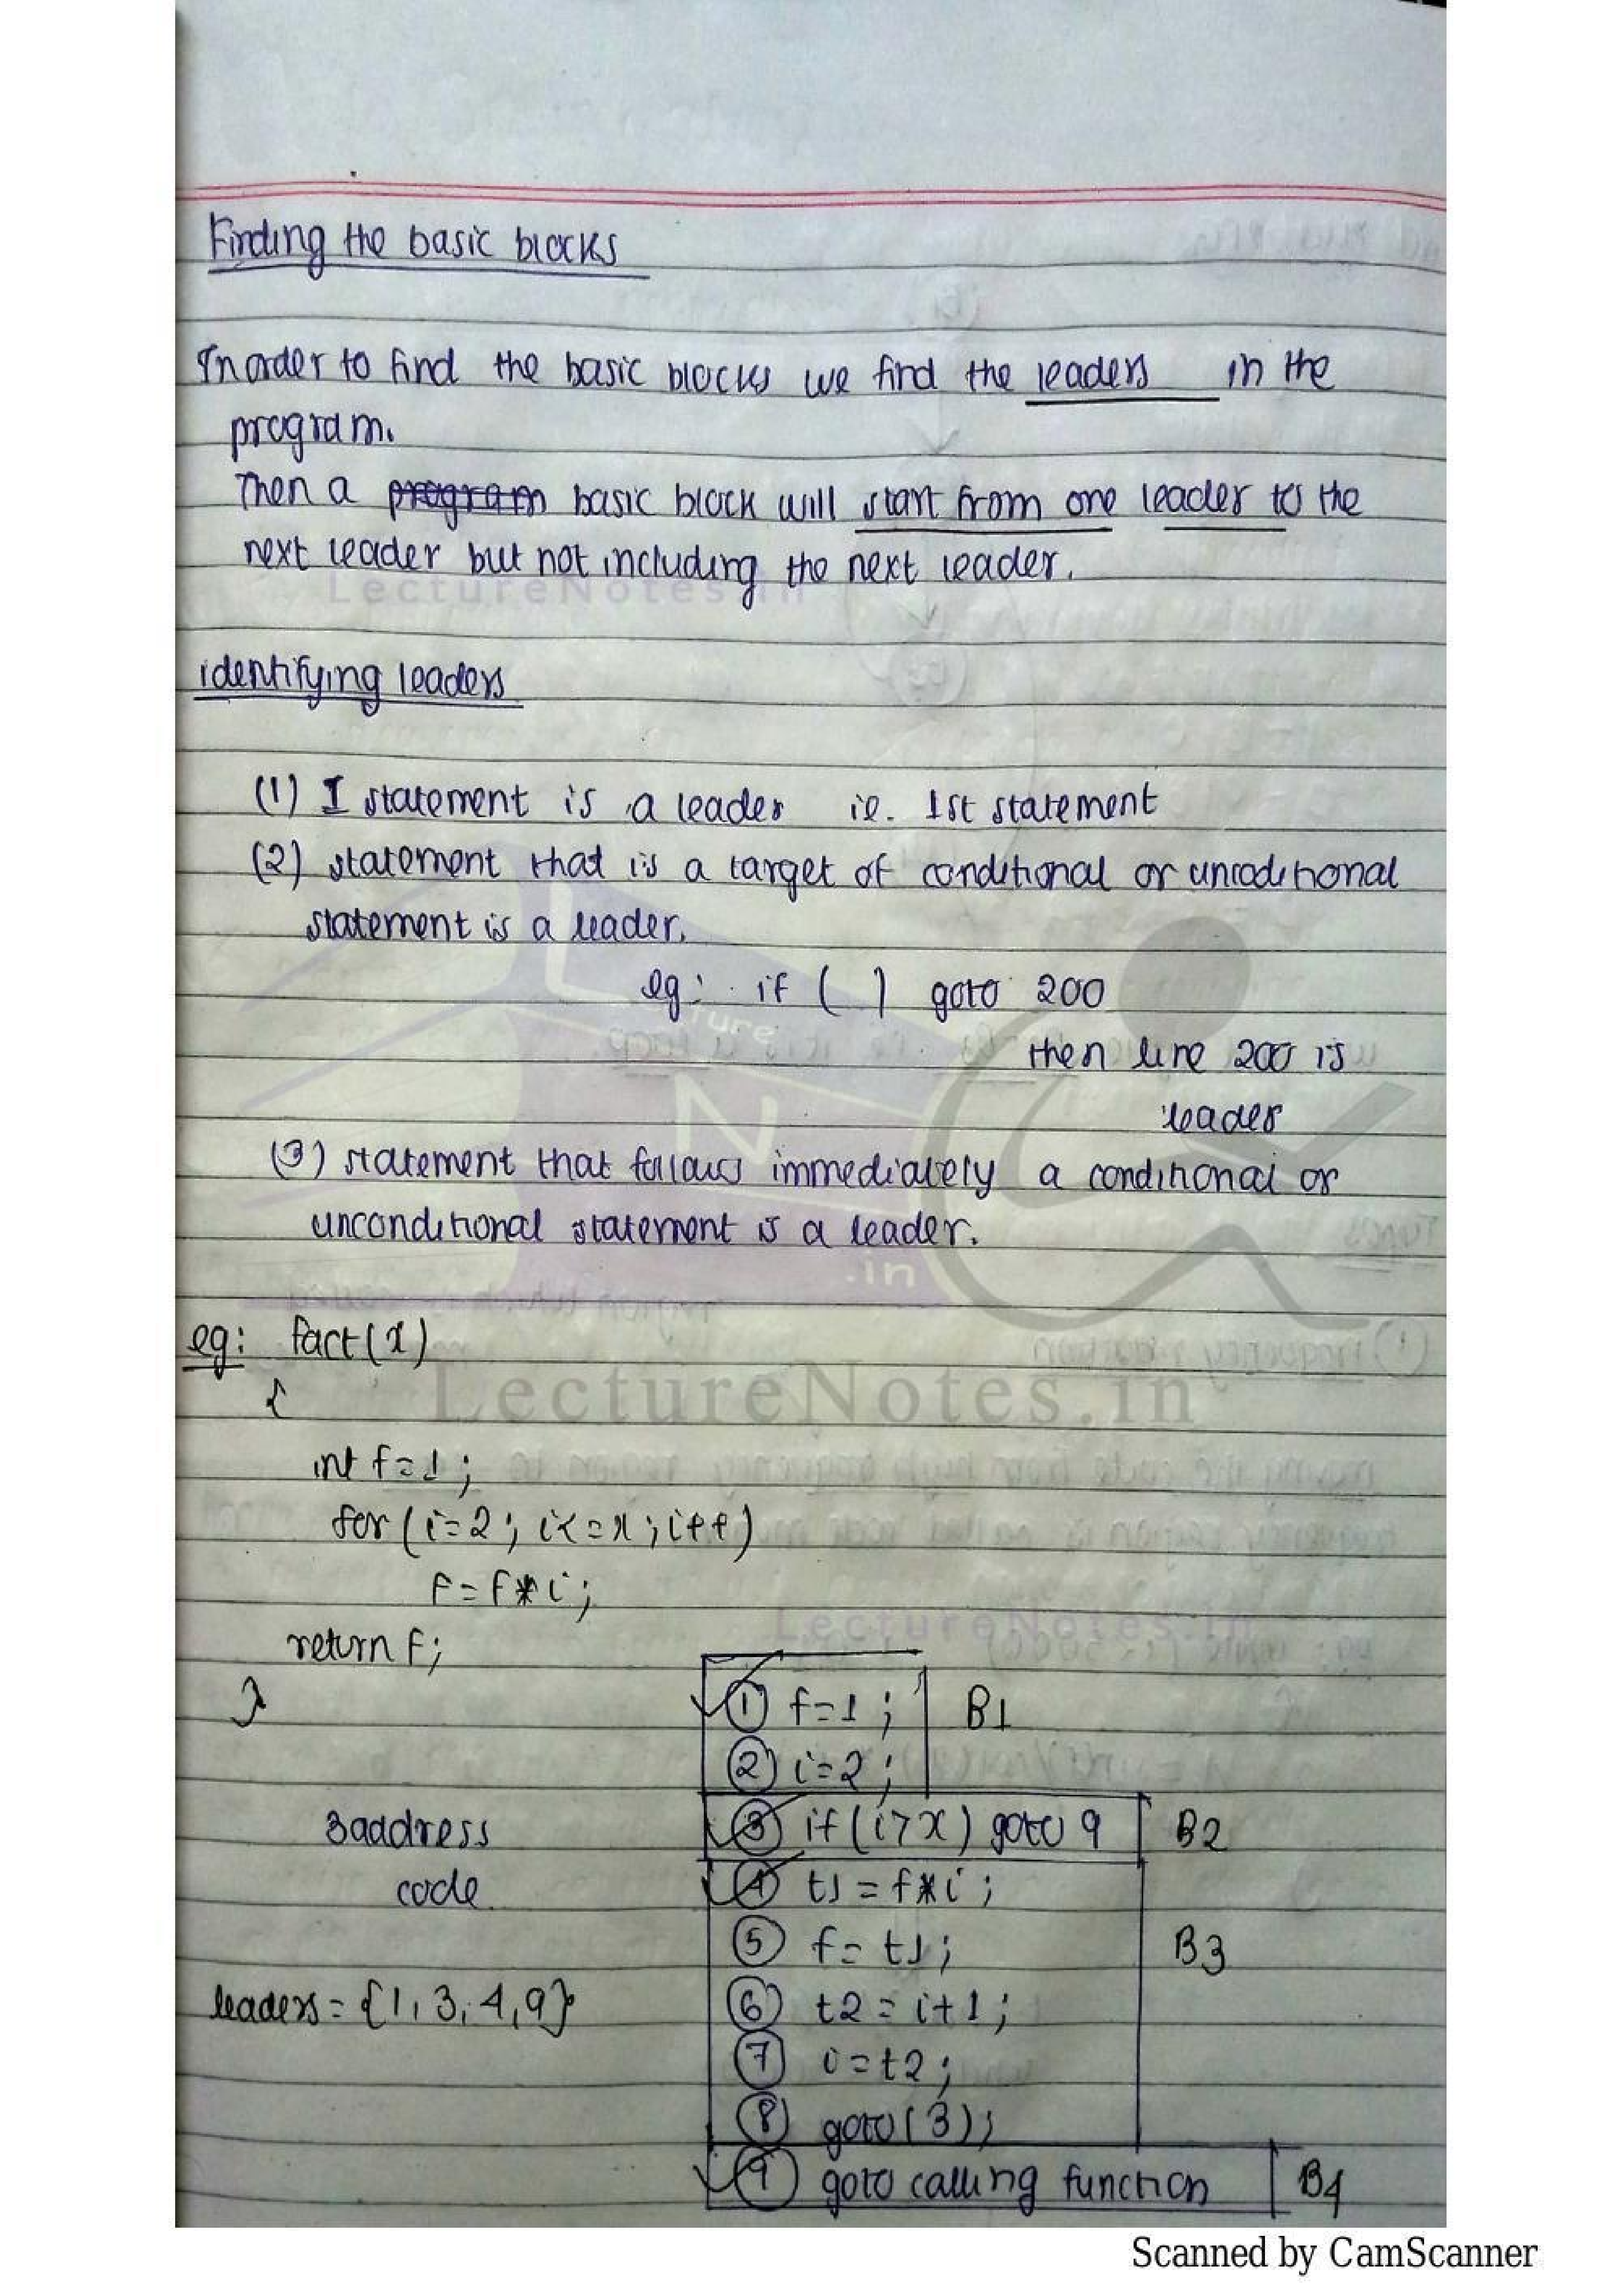 Finding the basic blocks
In order to find the basic blocks we find the leaders in the
program.
Then a program basic block will start from one leader to the
next leader but not including the next leader.
LectureNotes.in
identifying leaders
(1) I statement is a leader ie. 1st statement
(2) statement that is a target of conditional or uncoditional
statement is a leader.
eg: if ( ) goto 200
then line 200 is
leader
(3) statement that follows immediately a conditional or
unconditional statement is a leader.
eg: fact(x)
{
LectureNotes.in
int f=1;
for (i=2; i<=x; i++)
f=f*i;
LectureNotes.in
return f;
}
① f=1; B1
② i=2;
3address ③ if(i>x) goto 9 B2
code ④ t1=f*i;
⑤ f=t1; B3
leaders={1,3,4,9} ⑥ t2=i+1;
⑦ i=t2;
⑧ goto(3);
⑨ goto calling function B4
Scanned by CamScanner